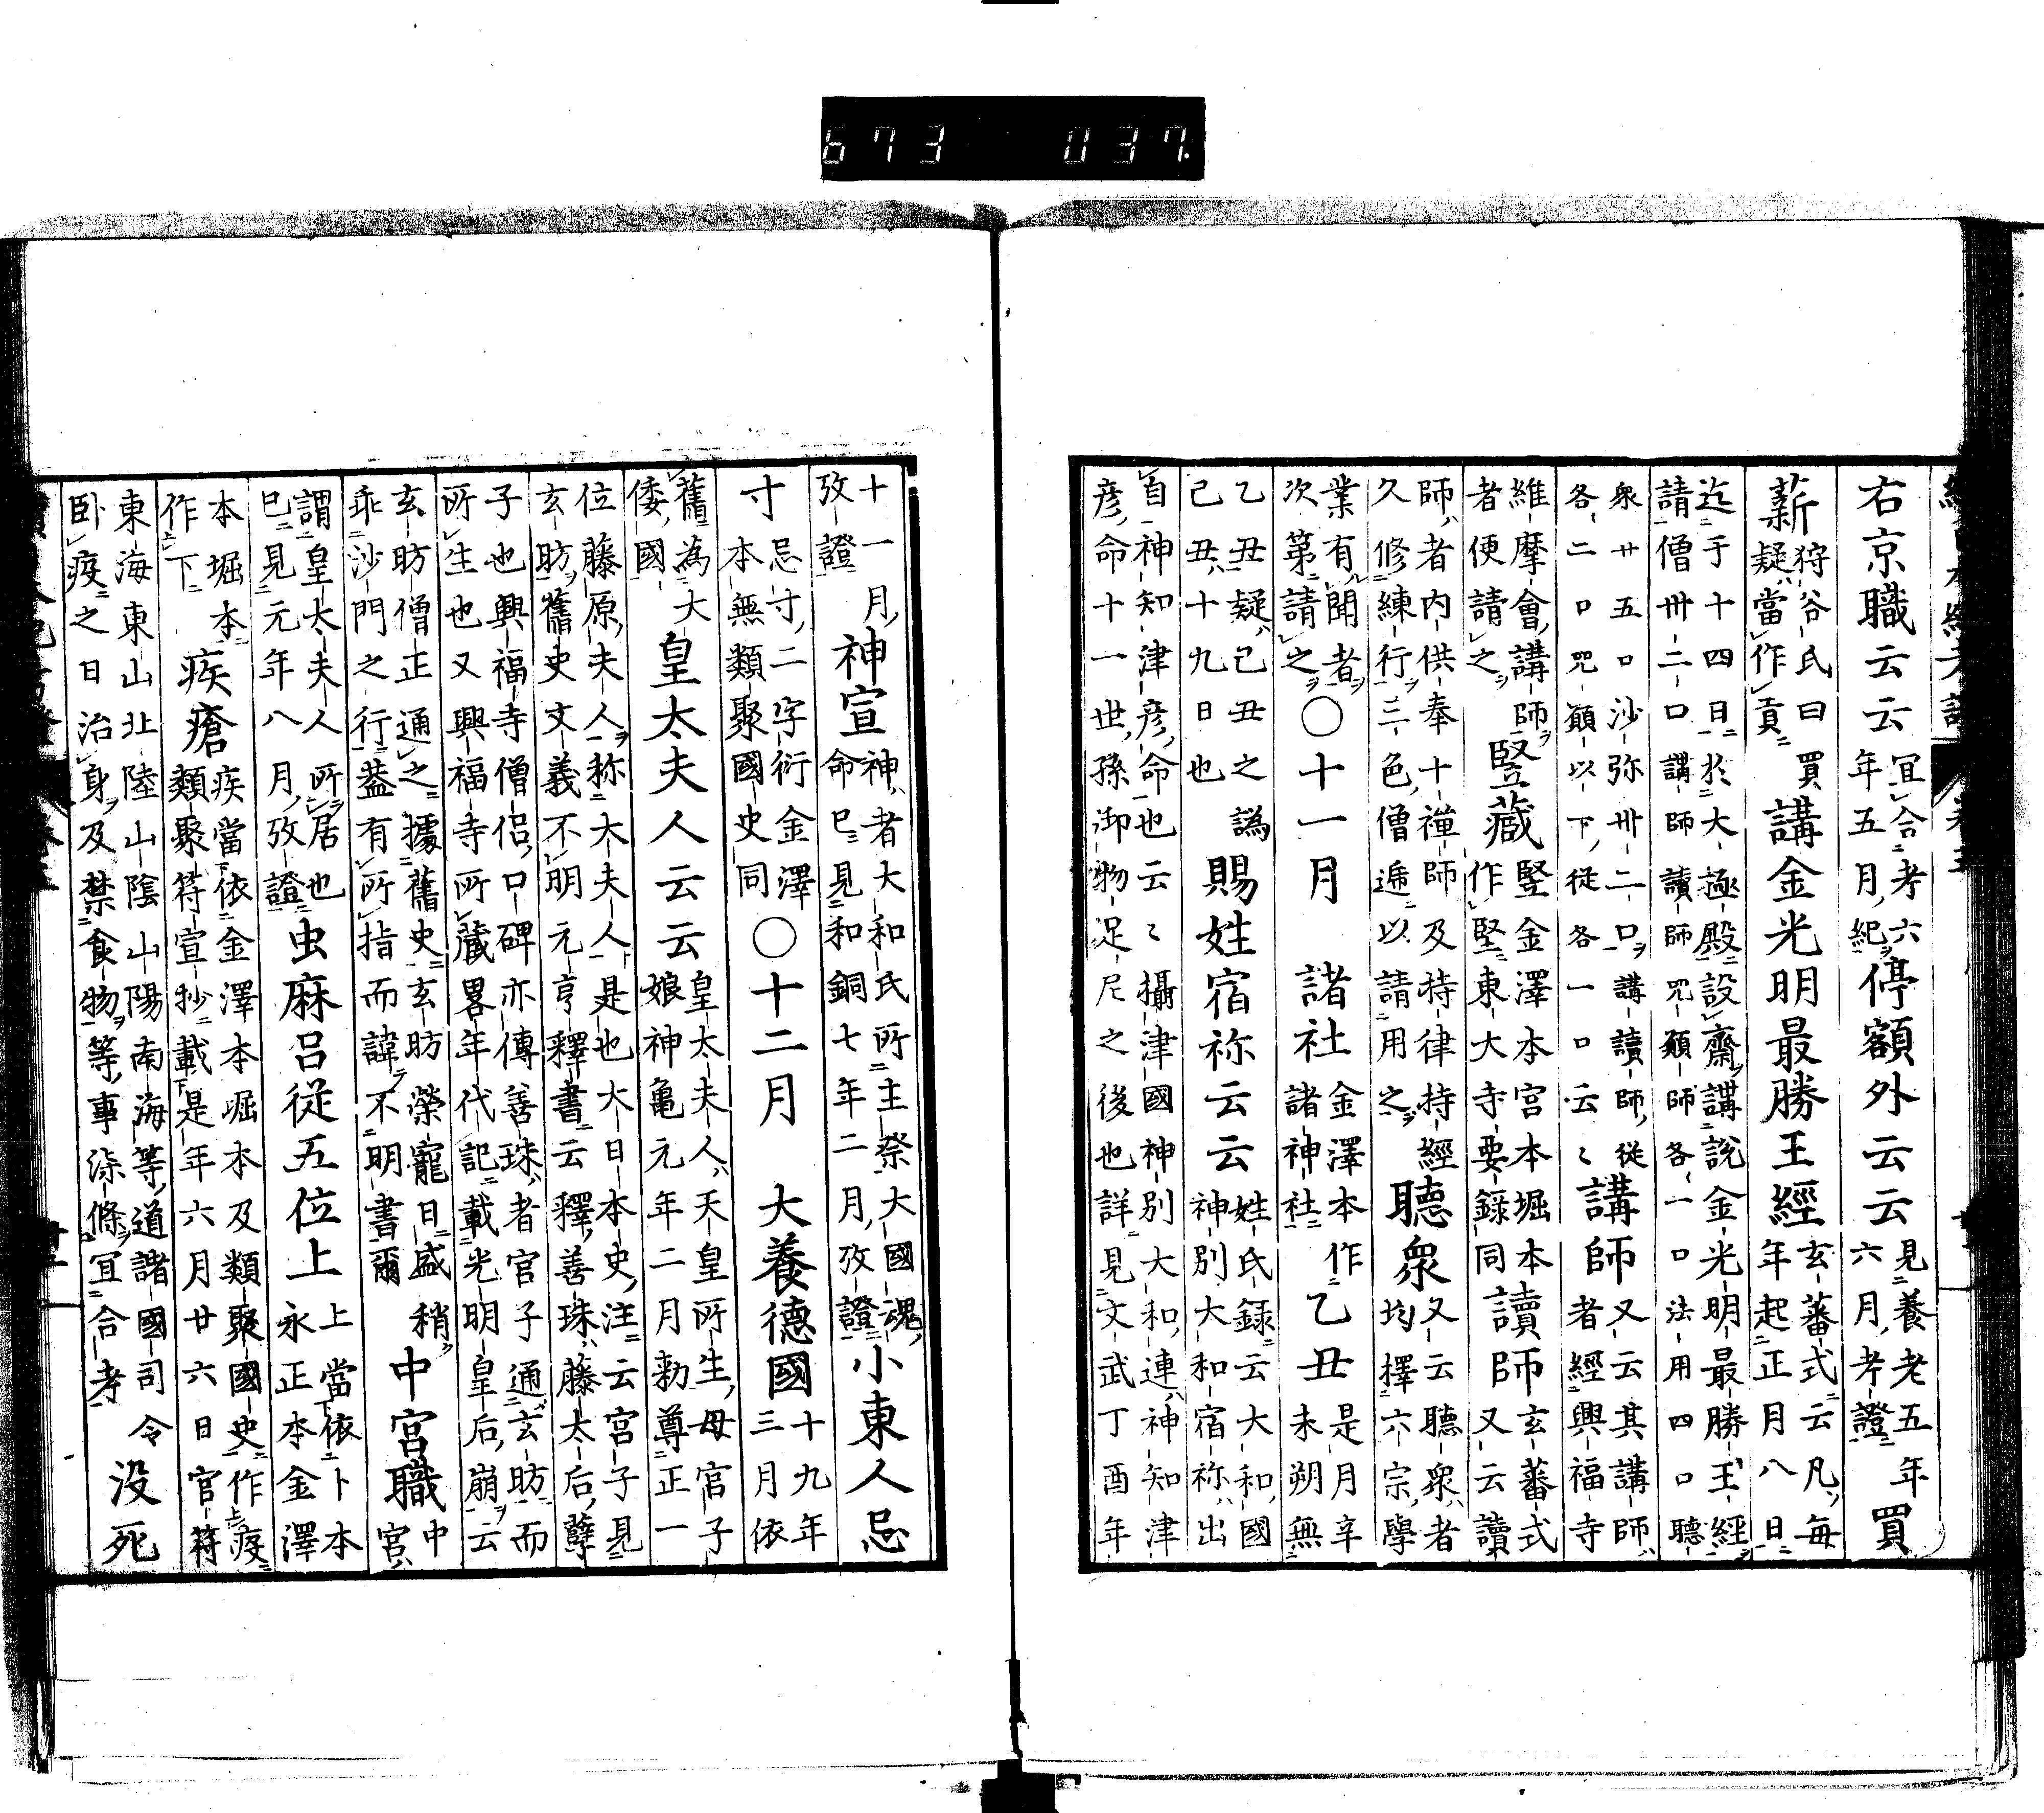 673 037.
右京職云云
宜合考六
年五月紀
停額外云云
見養老五年
六月考證
買
薪
狩谷氏曰買
疑當作貢
講金光明最勝王經
玄蕃式云凡毎
年起正月八日
迄于十四日於大極殿設齋講説金光明最勝王經
請僧卅二口講師讀師咒願師各一口法用四口聽
衆廿五口沙弥卅二口講讀師從
各二口咒願以下從各一口云〻
講師
又云其講師
者經興福寺
維摩會講師
者便請之
竪藏
竪金澤本宮本堀本
作堅東大寺要録同
讀師
玄蕃式
又云讀
師者内供奉十禪師及持律持經
久修練行三色僧遞以請用之
聽衆
又云聽衆者
均擇六宗學
業有聞者
次第請之
○十一月 諸社
金澤本作
諸神社
乙丑
是月辛
未朔無
乙丑疑己丑之譌
己丑十九日也
賜姓宿祢云云
姓氏録云大和國
神別大和宿祢出
自神知津彦命也云〻攝津國神別大和連神知津
彦命十一世孫御物足尼之後也詳見文武丁酉年
十一月
攷證
神宣
神者大和氏所主祭大國魂
命已見和銅七年二月攷證
小東人忌
寸
忌寸二字衍金澤
本無類聚國史同
○十二月 大養德國
十九年
三月依
舊為大
倭國
皇太夫人云云
皇太夫人天皇所生母官子
娘神亀元年二月勅尊正一
位藤原夫人称大夫人是也大日本史注云宮子見
玄昉舊史文義不明元亨釋書云釋善珠藤太后孽
子也興福寺僧侶口碑亦傳善珠者官子通玄昉而
所生也又興福寺所藏畧年代記載光明皇后崩云
玄昉僧正通之據舊史玄昉榮寵日盛稍
乖沙門之行蓋有所指而諱不明書爾
中宮職
中
宮
謂皇太夫人所居也
已見元年八月攷證
虫麻呂從五位上
上當依卜本
永正本金澤
本堀本
作下
疾瘡
疾當依金澤本堀本及類聚國史作疫
類聚符宣抄載是年六月廿六日官符
東海東山北陸山陰山陽南海等道諸國司
卧疫之日治身及禁食物等事漆條宜合考
令没死